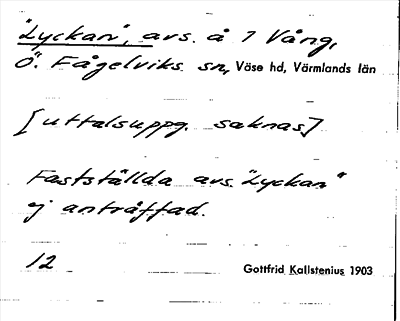 "Lyckan", avs. å 7 Vång,
Ö. Fågelviks sn, Väse hd, Värmlands län
[uttalsuppg. saknas]
Fastställda avs. "Lyckan"
ej anträffad.
12
Gottfrid Kallstenius 1903